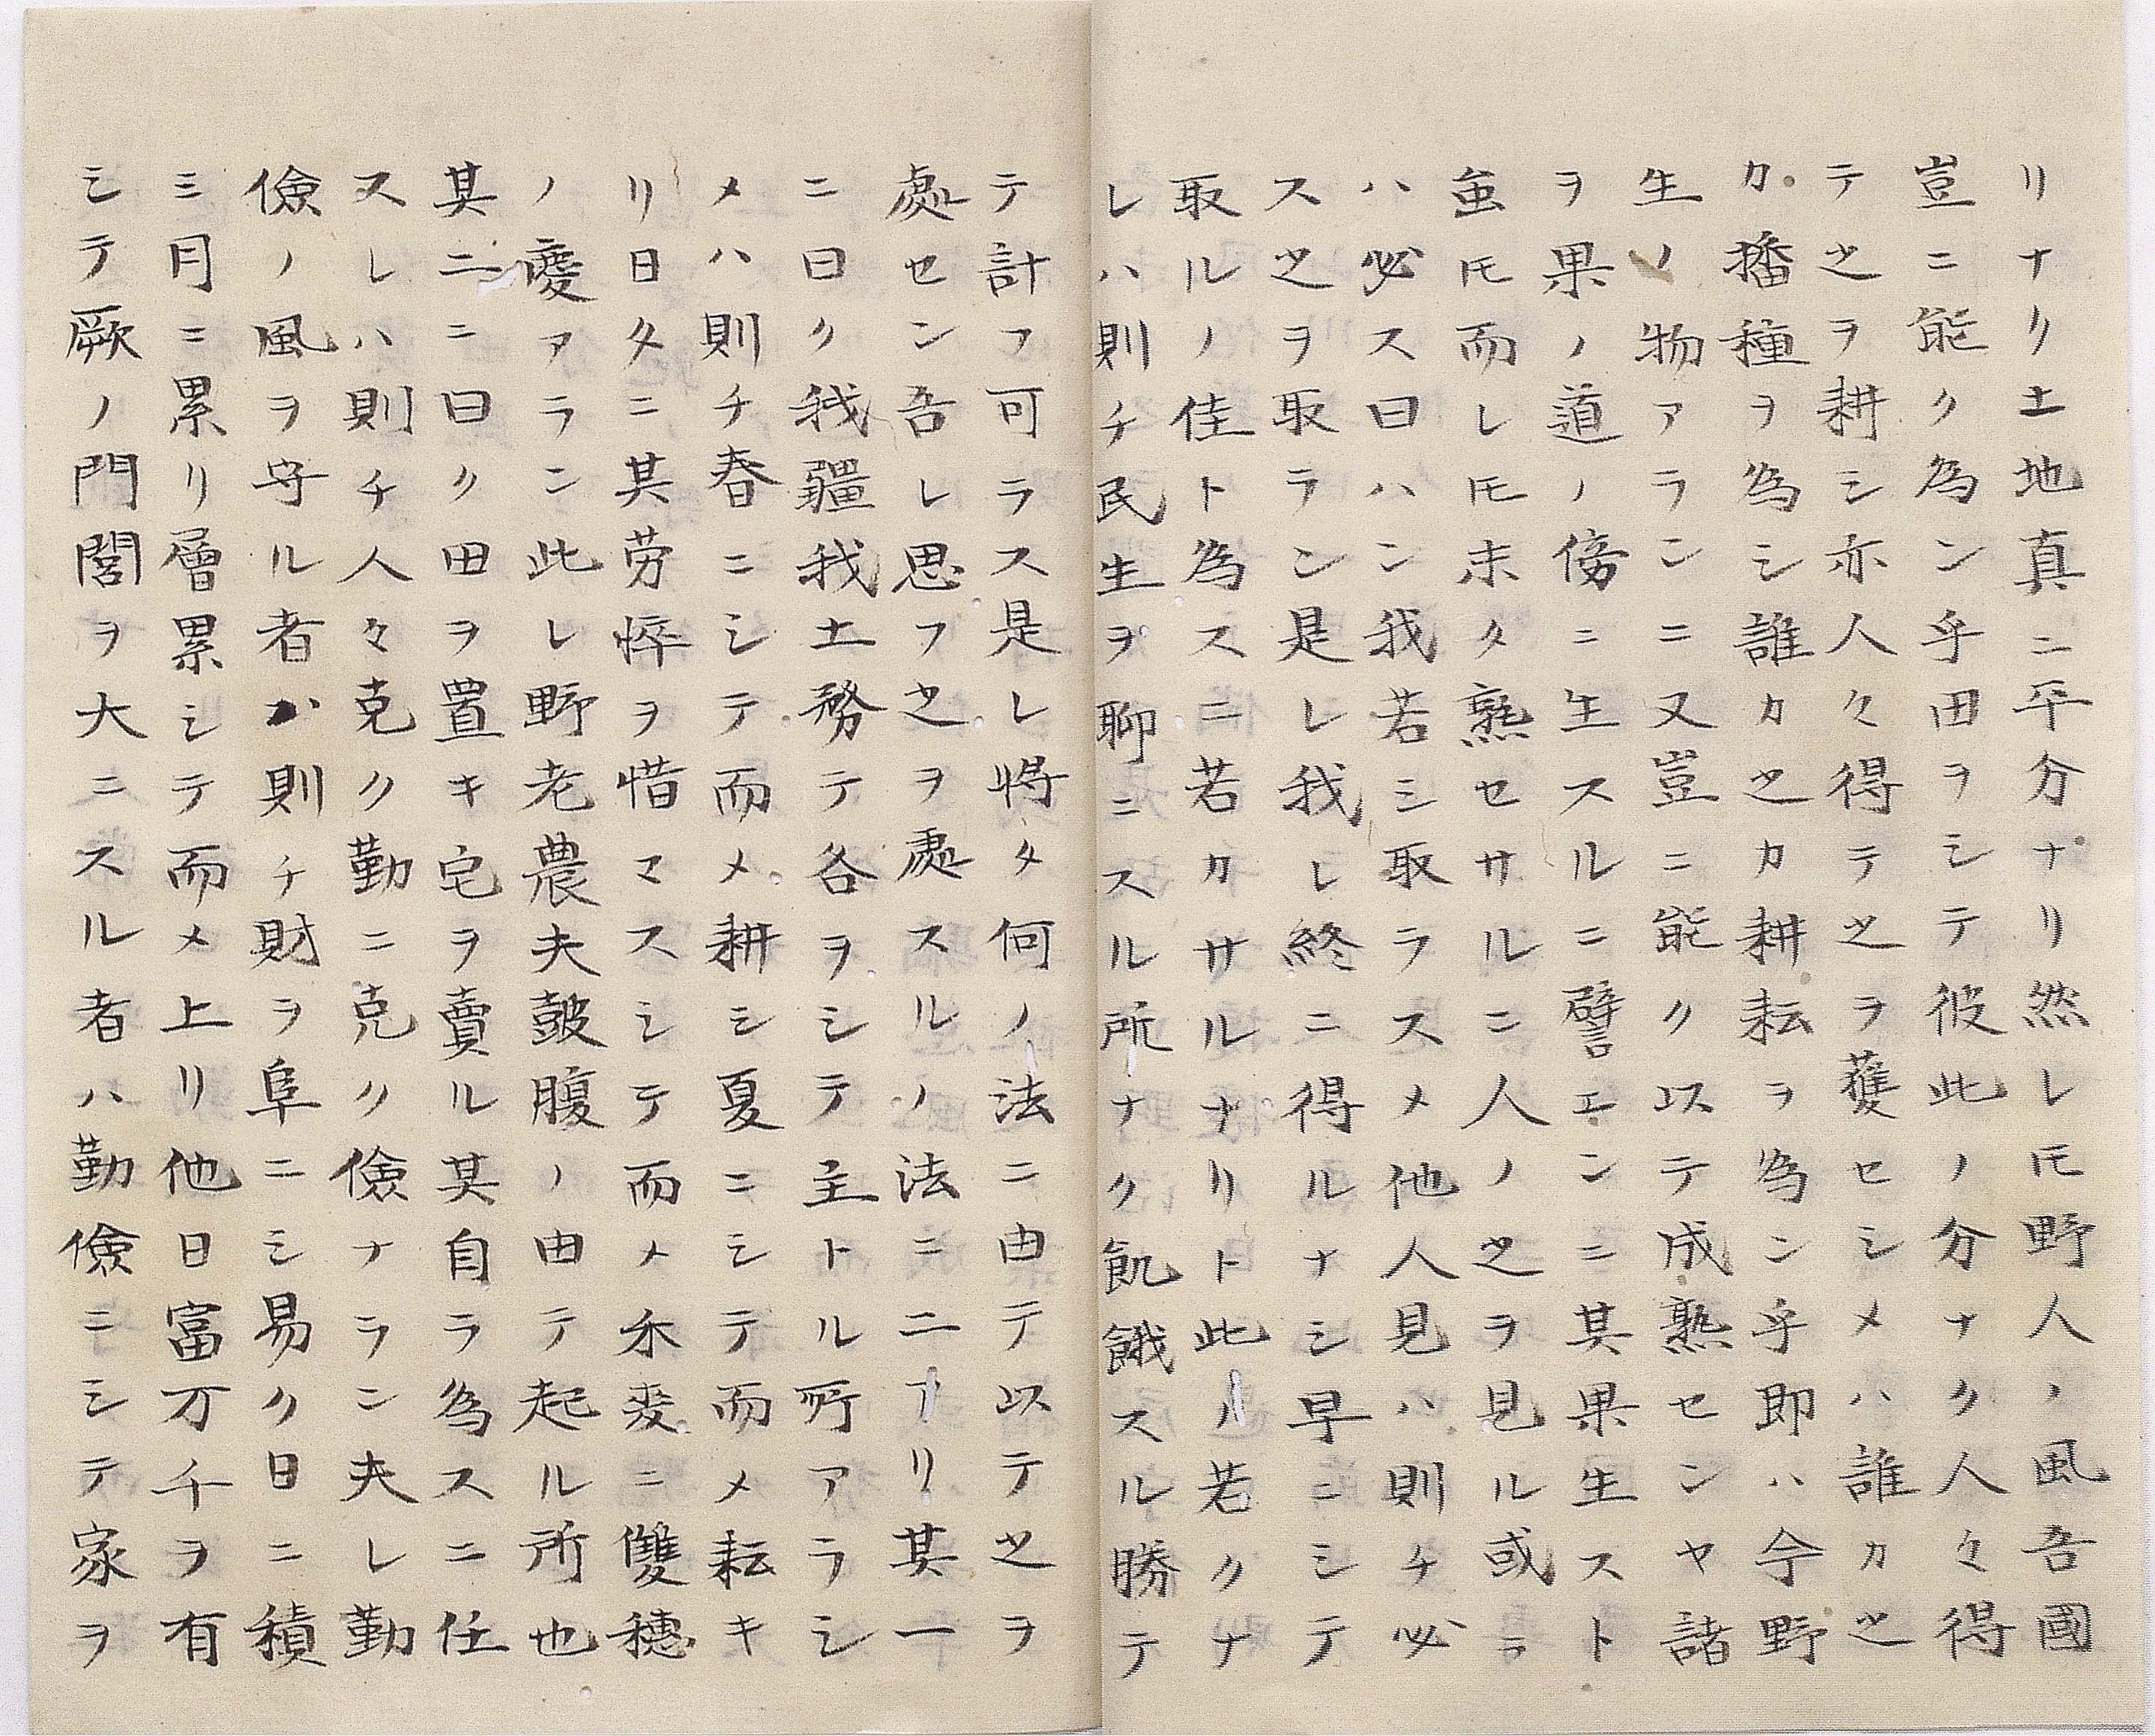 リナリ土地真ニ平分ナリ然レ𪜈野人ノ風吾國
豈ニ能ク為ン乎田ヲシテ彼此ノ分ナク人々得
テ之ヲ耕シ亦人々得テ之ヲ蒦セシメハ誰カ之
カ播種ヲ為シ誰カ之カ耕耘ヲ為ン乎即ハ今野
生ノ物アランニ又豈ニ能ク以テ成熟センヤ諸
ヲ果ノ道ノ傍ニ生スルニ譬エンニ其果生スト
虽𪜈而レ𪜈未タ熟セサルニ人ノ之ヲ見ル或ヲ
ハ必ス曰ハン我若シ取ラスメ他人見ハ則チ必
ス之ヲ取ラン是レ我レ終ニ得ルナシ早ニシテ
取ルノ佳ト為スニ若カサルナリト此ノ若クナ
レハ則チ民生ヲ聊ニスル所ナク飢餓スル勝テ
テ計フ可ラス是レ将タ何ノ法ニ由テ以テ之ヲ
處セン吾レ思フ之ヲ處スルノ法ニ二アリ其一
ニ曰ク我疆我土務テ各ヲシテ主トル所アラシ
メハ則チ春ニシテ而メ耕シ夏ニシテ而メ耘キ
リ日夕ニ其労悴ヲ惜マスシテ而メ禾麦ニ雙穂
ノ慶アラン此レ野老農夫皷腹ノ由テ起ル所也
其二ニ曰ク田ヲ置キ宅ヲ賣ル其自ラ為スニ任
スレハ則チ人々克ク勤ニ克ク儉ナラン夫レ勤
儉ノ風ヲ守ル者ハ則チ財ヲ阜ニシ易ク日ニ積
ミ月ニ累リ層累シテ而メ上リ他日富万千ヲ有
シテ厥ノ門閭ヲ大ニスル者ハ勤儉ニシテ家ヲ